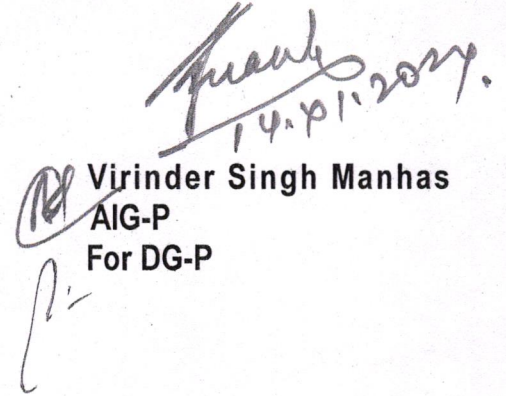 14.XI.2024.
Virinder Singh Manhas
AIG-P
For DG-P